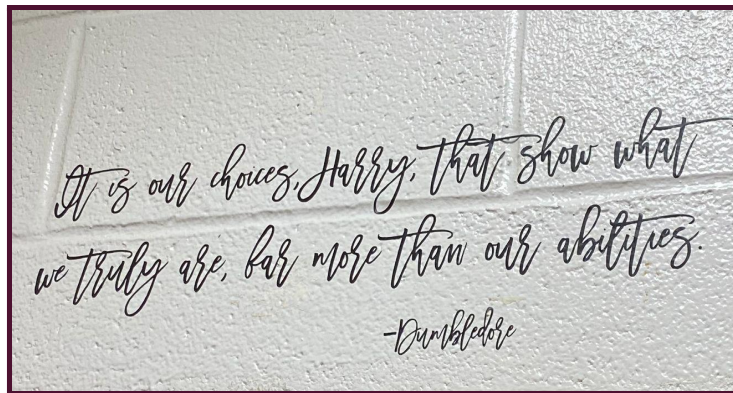 It is our choices, Harry, that show what
we truly are, far more than our abilities.
-Dumbledore